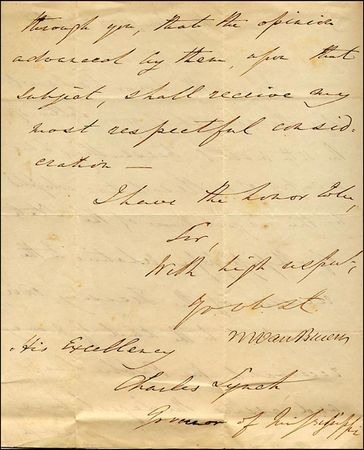 through you, that the opinion
advanced by them, upon that
subject, shall receive my
most respectful consid
eration —
I have the honor to be,
Sir,
With high respect,
Yr ob. st
M Van Buren
His Excellency
Charles Lynch
Governor of Mississippi